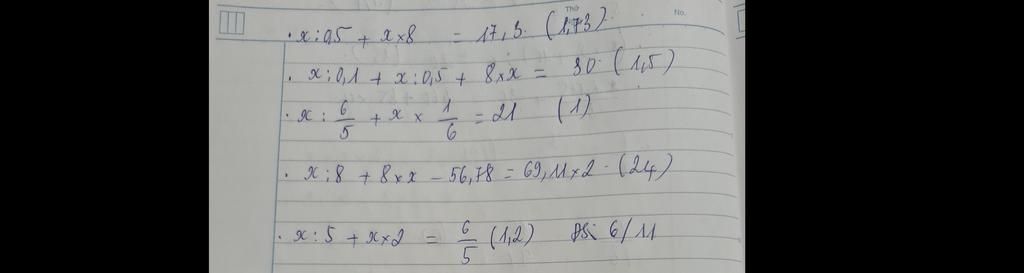 Thứ
No.
. x : 0,5 + x × 8 = 17,3. (1,73)
. x : 0,1 + x : 0,5 + 8 × x = 30. (1,5)
. x : 6/5 + x × 1/6 = 21 (1)
. x : 8 + 8 × x - 56,78 = 69,11 × 2. (24)
. x : 5 + x × 2 = 6/5 (1,2) ĐS: 6/11